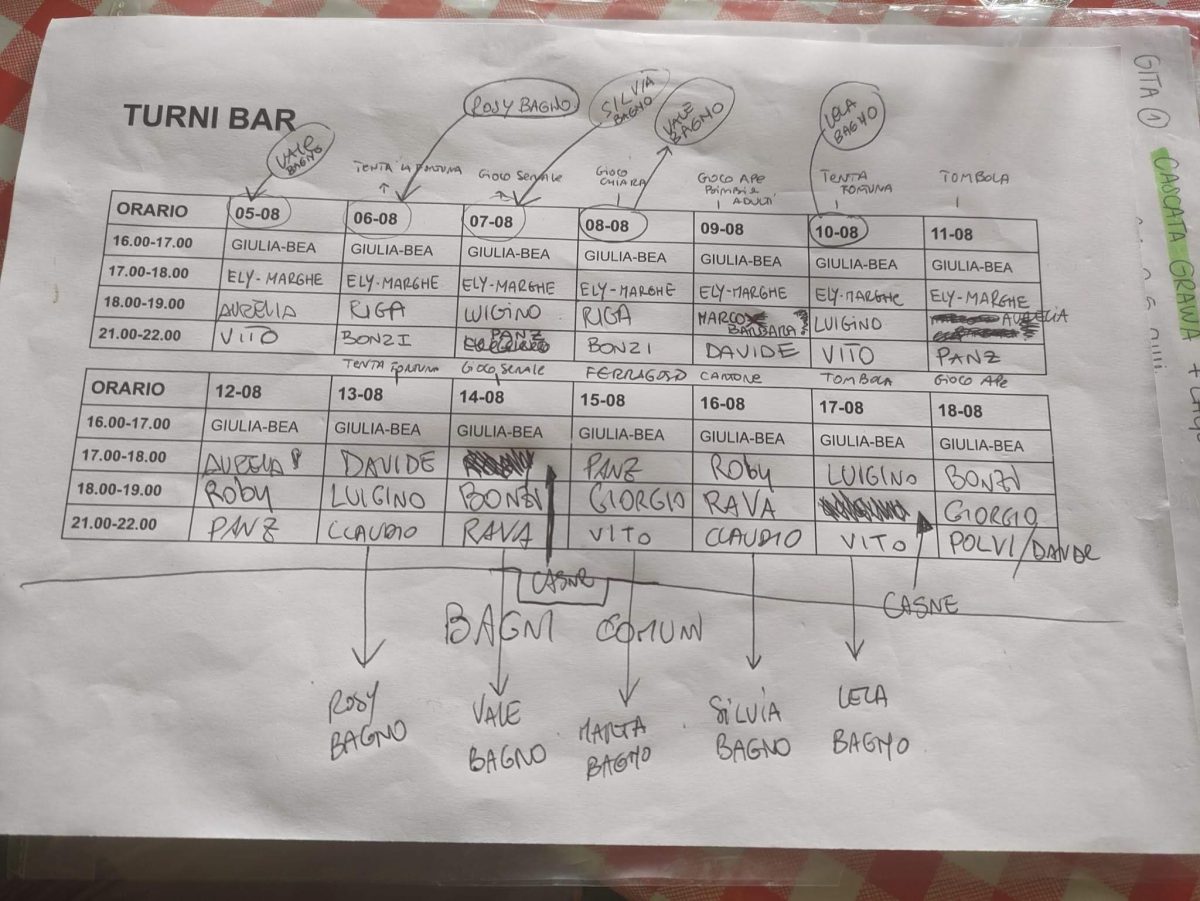 ROSY BAGNO
SILVIA BAGNO
VALE BAGNO
LELA BAGNO
TURNI BAR
VALE BAGNO
TENTA LA FORTUNA
GIOCO SERALE
GIOCO CHIARA
GIOCO APE BIMBI E ADULTI
TENTA FORTUNA
TOMBOLA
ORARIO 05-08 06-08 07-08 08-08 09-08 10-08 11-08
16.00-17.00 GIULIA-BEA GIULIA-BEA GIULIA-BEA GIULIA-BEA GIULIA-BEA GIULIA-BEA GIULIA-BEA
17.00-18.00 ELY-MARGHE ELY-MARGHE ELY-MARGHE ELY-MARGHE ELY-MARGHE ELY-MARGHE ELY-MARGHE
18.00-19.00 AURELIA RIGA LUIGINO RIGA MARCO BARBARA LUIGINO AURELIA
21.00-22.00 VITO BONZI PANZ BONZI DAVIDE VITO PANZ
TENTA FORTUNA GIOCO SERALE FERRAGOSTO CANZONE TOMBOLA GIOCO APE
ORARIO 12-08 13-08 14-08 15-08 16-08 17-08 18-08
16.00-17.00 GIULIA-BEA GIULIA-BEA GIULIA-BEA GIULIA-BEA GIULIA-BEA GIULIA-BEA GIULIA-BEA
17.00-18.00 AURELIA DAVIDE PANZ ROBY LUIGINO BONZI
18.00-19.00 ROBY LUIGINO BONZI GIORGIO RAVA GIORGIO
21.00-22.00 PANZ CLAUDIO RAVA VITO CLAUDIO VITO POLVI/DAVIDE
CASNE
CASNE
BAGNI COMUNI
ROSY BAGNO
VALE BAGNO
MARTA BAGNO
SILVIA BAGNO
LELA BAGNO
GITA 1
CASCATA GRAWA +